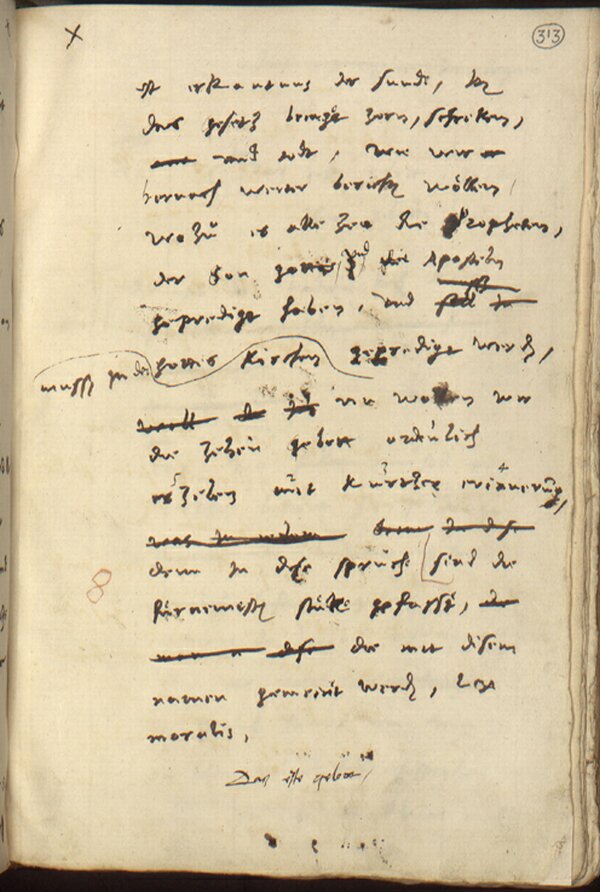 313
ist erkantnus der sunde,
das gesetz bringt zorn, schreken,
und todt, wie wir
hernach weiter bericht wöllen
wozu es alle zeit die Propheten,
der Son gottis, und Aposteln
geprediget haben, und
muss in der gottes kirchen geprediget werden,
nu wollen wir
die zehen gebott ordenlich
erzelen mit kurtzer erinnerung,
denn in dise spruche sind die
fürnemisten stüke gefasst,
die mit disem
namen genennt werden, Lex
moralis,
Das erste gebott,
8